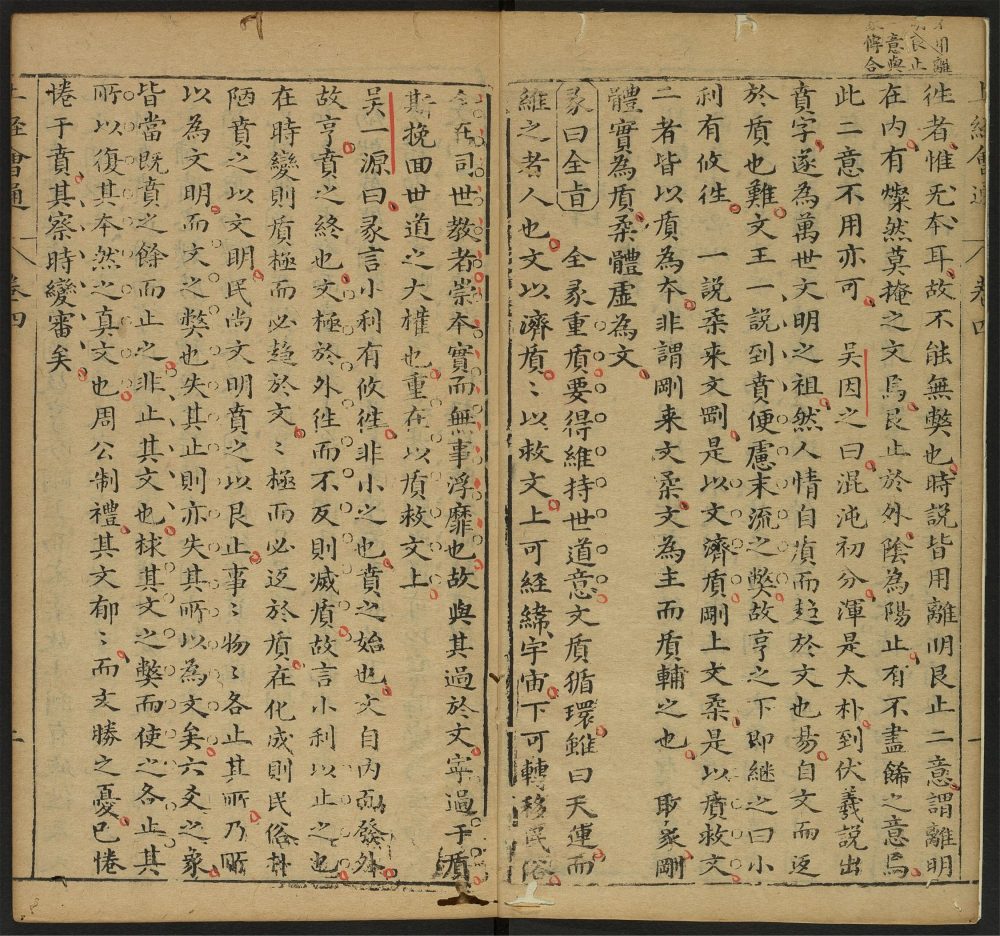 用離
艮止
意與
傳合
上經會通 卷四
徃者惟无本耳故不能無獘也時説皆用離明艮止二意謂離明
在内有燦然莫掩之文焉艮止於外隂為陽止有不盡餙之意焉
此二意不用亦可 吴因之曰混沌初分渾是太朴到伏羲説出
賁字遂為萬世文明之祖然人情自質而趍於文也易自文而返
於質也難文王一説到賁便慮末流之獘故亨之下即継之曰小
利有攸徃 一説柔来文剛是以文濟質剛上文柔是以質救文
二者皆以質為本非謂剛来文柔文為主而質輔之也 取彖剛
體實為質柔體虚為文
彖曰全旨 全彖重質要得維持世道意文質循環雖曰天運而
維之者人也文以濟質〻以救文上可経緯宇宙下可轉移民俗
全在司世教者崇本實而無事浮靡也故與其過於文寜過于質
斯挽囬世道之大權也重在以質救文上
吴一源曰彖言小利有攸徃非小之也賁之始也文自内而發外
故亨賁之終也文極於外徃而不反則滅質故言小利以止之也
在時變則質極而必趍於文〻極而必返於質在化成則民俗朴
陋賁之以文明民尚文明賁之以艮止事〻物〻各止其所乃所
以為文明而文之獘也失其止則亦失其所以為文矣六爻之象
皆當既賁之餘而止之非止其文也救其文之獘而使之各止其
所以復其本然之真文也周公制禮其文郁〻而文勝之憂已惓
惓于賁其察時變審矣
上經會通 卷四